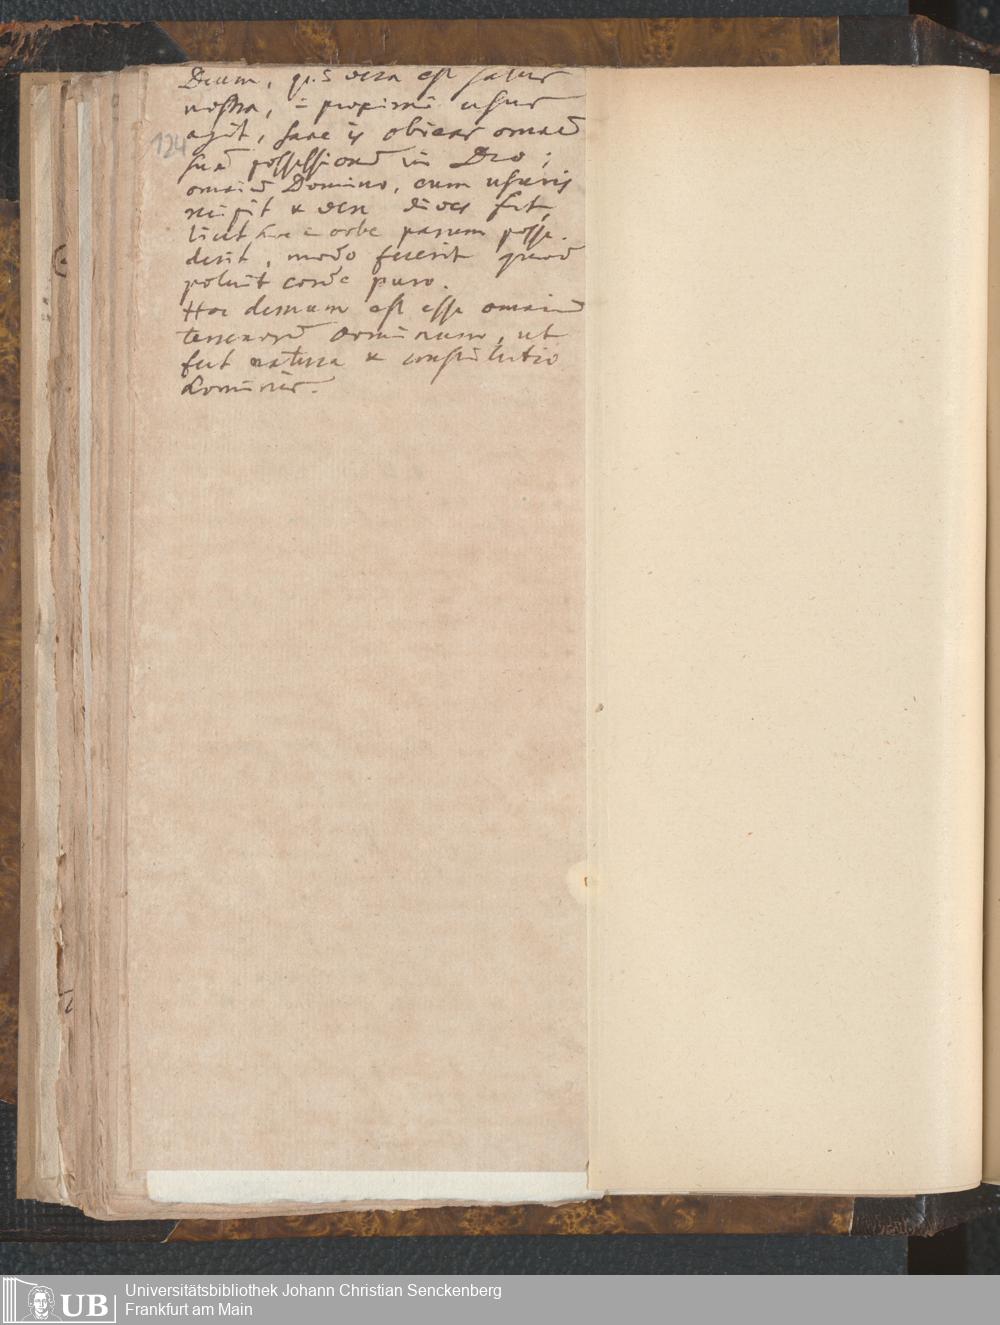 Deum, qs vera est salus
nostra, in proximi usus
agit, sane is
124
possessionem in Deo,
omnium Domino, cum
& vere dives fit,
licet in orbe parum posse-
derit, modo fecerit quod
potuit corde puro.
Hoc demum est esse omnium
terrarum dominum, ut
fert natura & constitutio
Dominis.
UB
Universitätsbibliothek Johann Christian Senckenberg
Frankfurt am Main